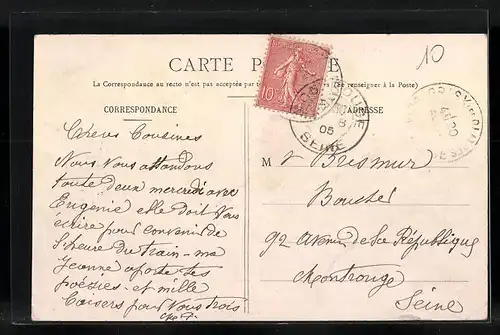 10
CARTE POSTALE
(La Correspondance au recto n'est pas acceptée par
se renseigner à la Poste)
CORRESPONDANCE
ADRESSE
10
05
SEINE
Chères Cousines
Nous Vous attendons
toute deux mercredi avec
Eugénie elle doit Vous
écrire pour convenir de
l'heure du train - ma
Jeanne apporte tes
poésies - et mille
baisers pour Vous trois
M
Bresmur
Boucher
92 avenue de la République
Montrouge
Seine